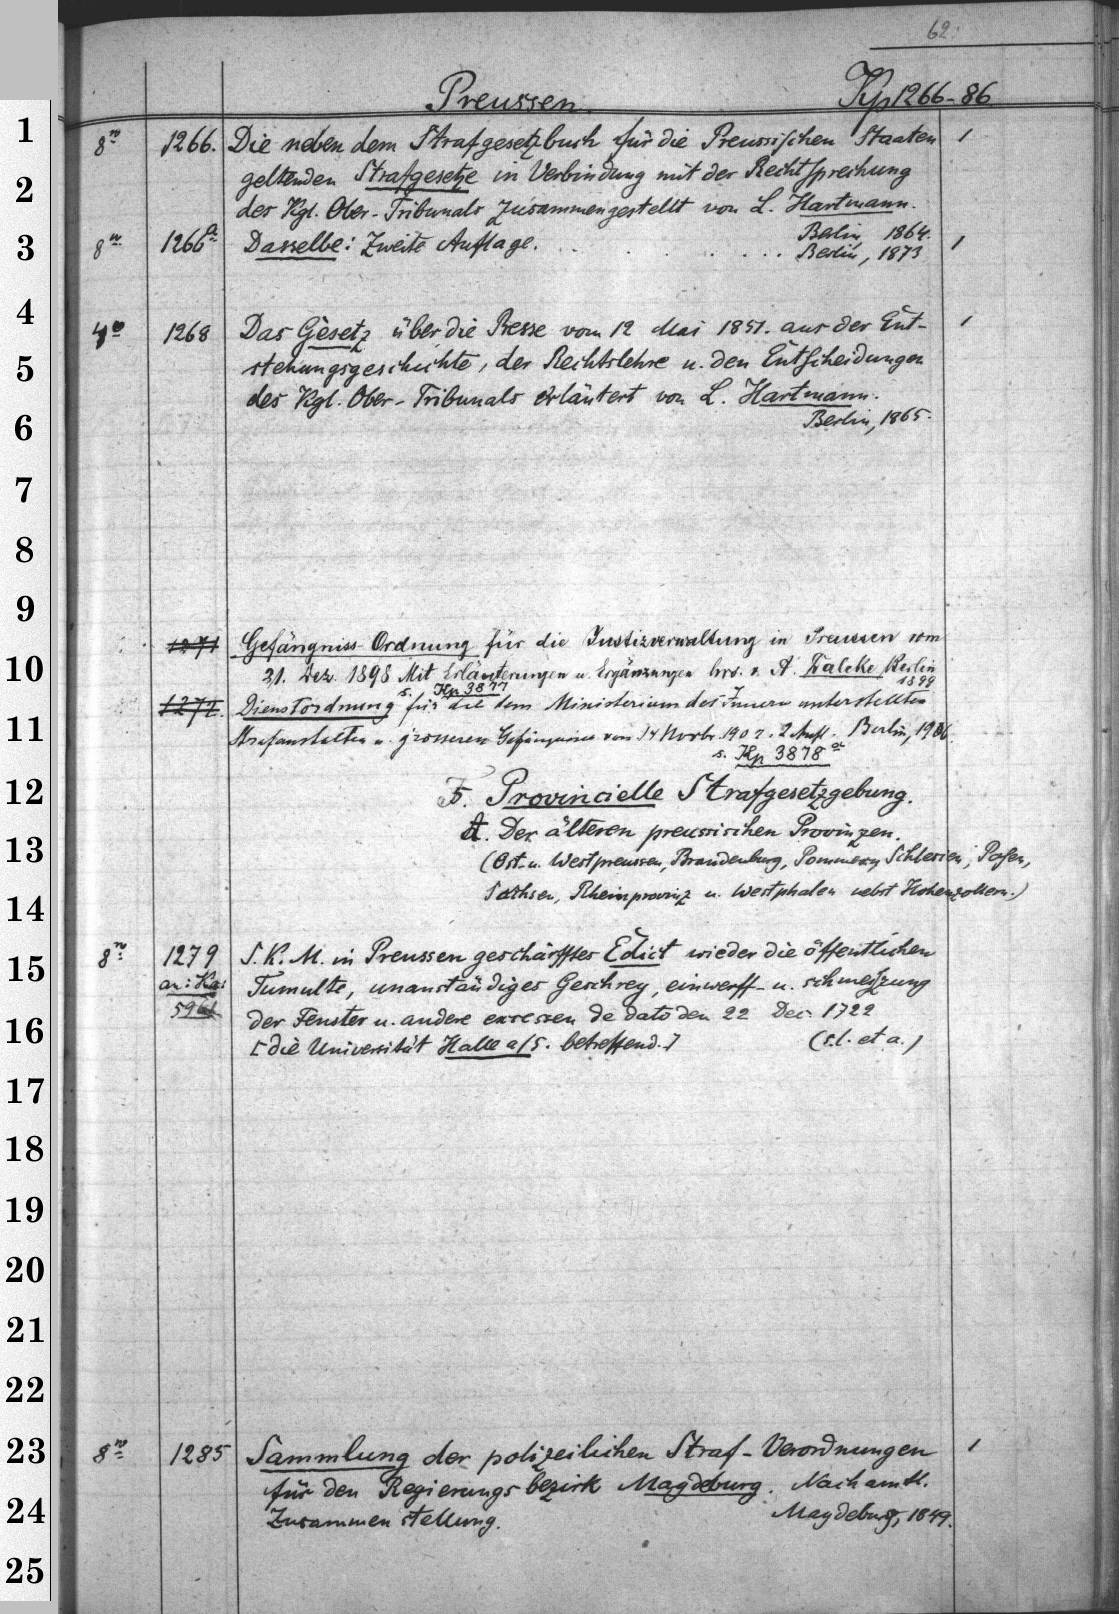 62.
Preussen. Kp 1266-86
1
8º 1266. Die neben dem Strafgesetzbuch für die Preussischen Staaten 1
2
geltenden Strafgesetze in Verbindung mit der Rechtsprechung
des Kgl. Ober-Tribunals zusammengestellt von L. Hartmann.
Berlin 1864.
3
8º 1266a Dasselbe: Zweite Auflage. . . . . . . Berlin, 1873 1
4
4º 1268 Das Gesetz über die Presse vom 12 Mai 1851. aus der Ent- 1
5
stehungsgeschichte, der Rechtslehre u. den Entscheidungen
des Kgl. Ober-Tribunals erläutert von L. Hartmann.
6
Berlin, 1865.
7
8
9
1271 Gefängniss-Ordnung für die Justizverwaltung in Preussen vom
10
21. Dez. 1898 Mit Erläuterungen u. Ergänzungen hrs. v. A. Kalcke Berlin
1899
s. Kp 3877
1272. Dienstordnung für die dem Ministerium des Innern unterstellten
11
Strafanstalten u. grösseren Gefängnisse vom 14 Novbr 1902. 2 Aufl. Berlin, 1906
s. Kp 3878a
12
5. Provincielle Strafgesetzgebung.
A. Der älteren preussischen Provinzen.
13
(Ost- u. Westpreussen, Brandenburg, Pommern, Schlesien, Posen,
14
Sachsen, Rheinprovinz u. Westphalen nebst Hohenzollern.)
8º 1279 S. K. M. in Preussen geschärfftes Edict wieder die öffentlichen
15
an: Ka: Tumulte, unanständiges Geschrey, einwerff- u. schmeissung
596 der Fenster u. andere excessen de dato den 22 Dec. 1722
16
[die Universität Halle a/S. betreffend.] (s.l. et a.)
17
18
19
20
21
22
23
8º 1285 Sammlung der polizeilichen Straf-Verordnungen 1
für den Regierungsbezirk Magdeburg. Nach amtl.
24
Zusammenstellung. Magdeburg, 1849.
25